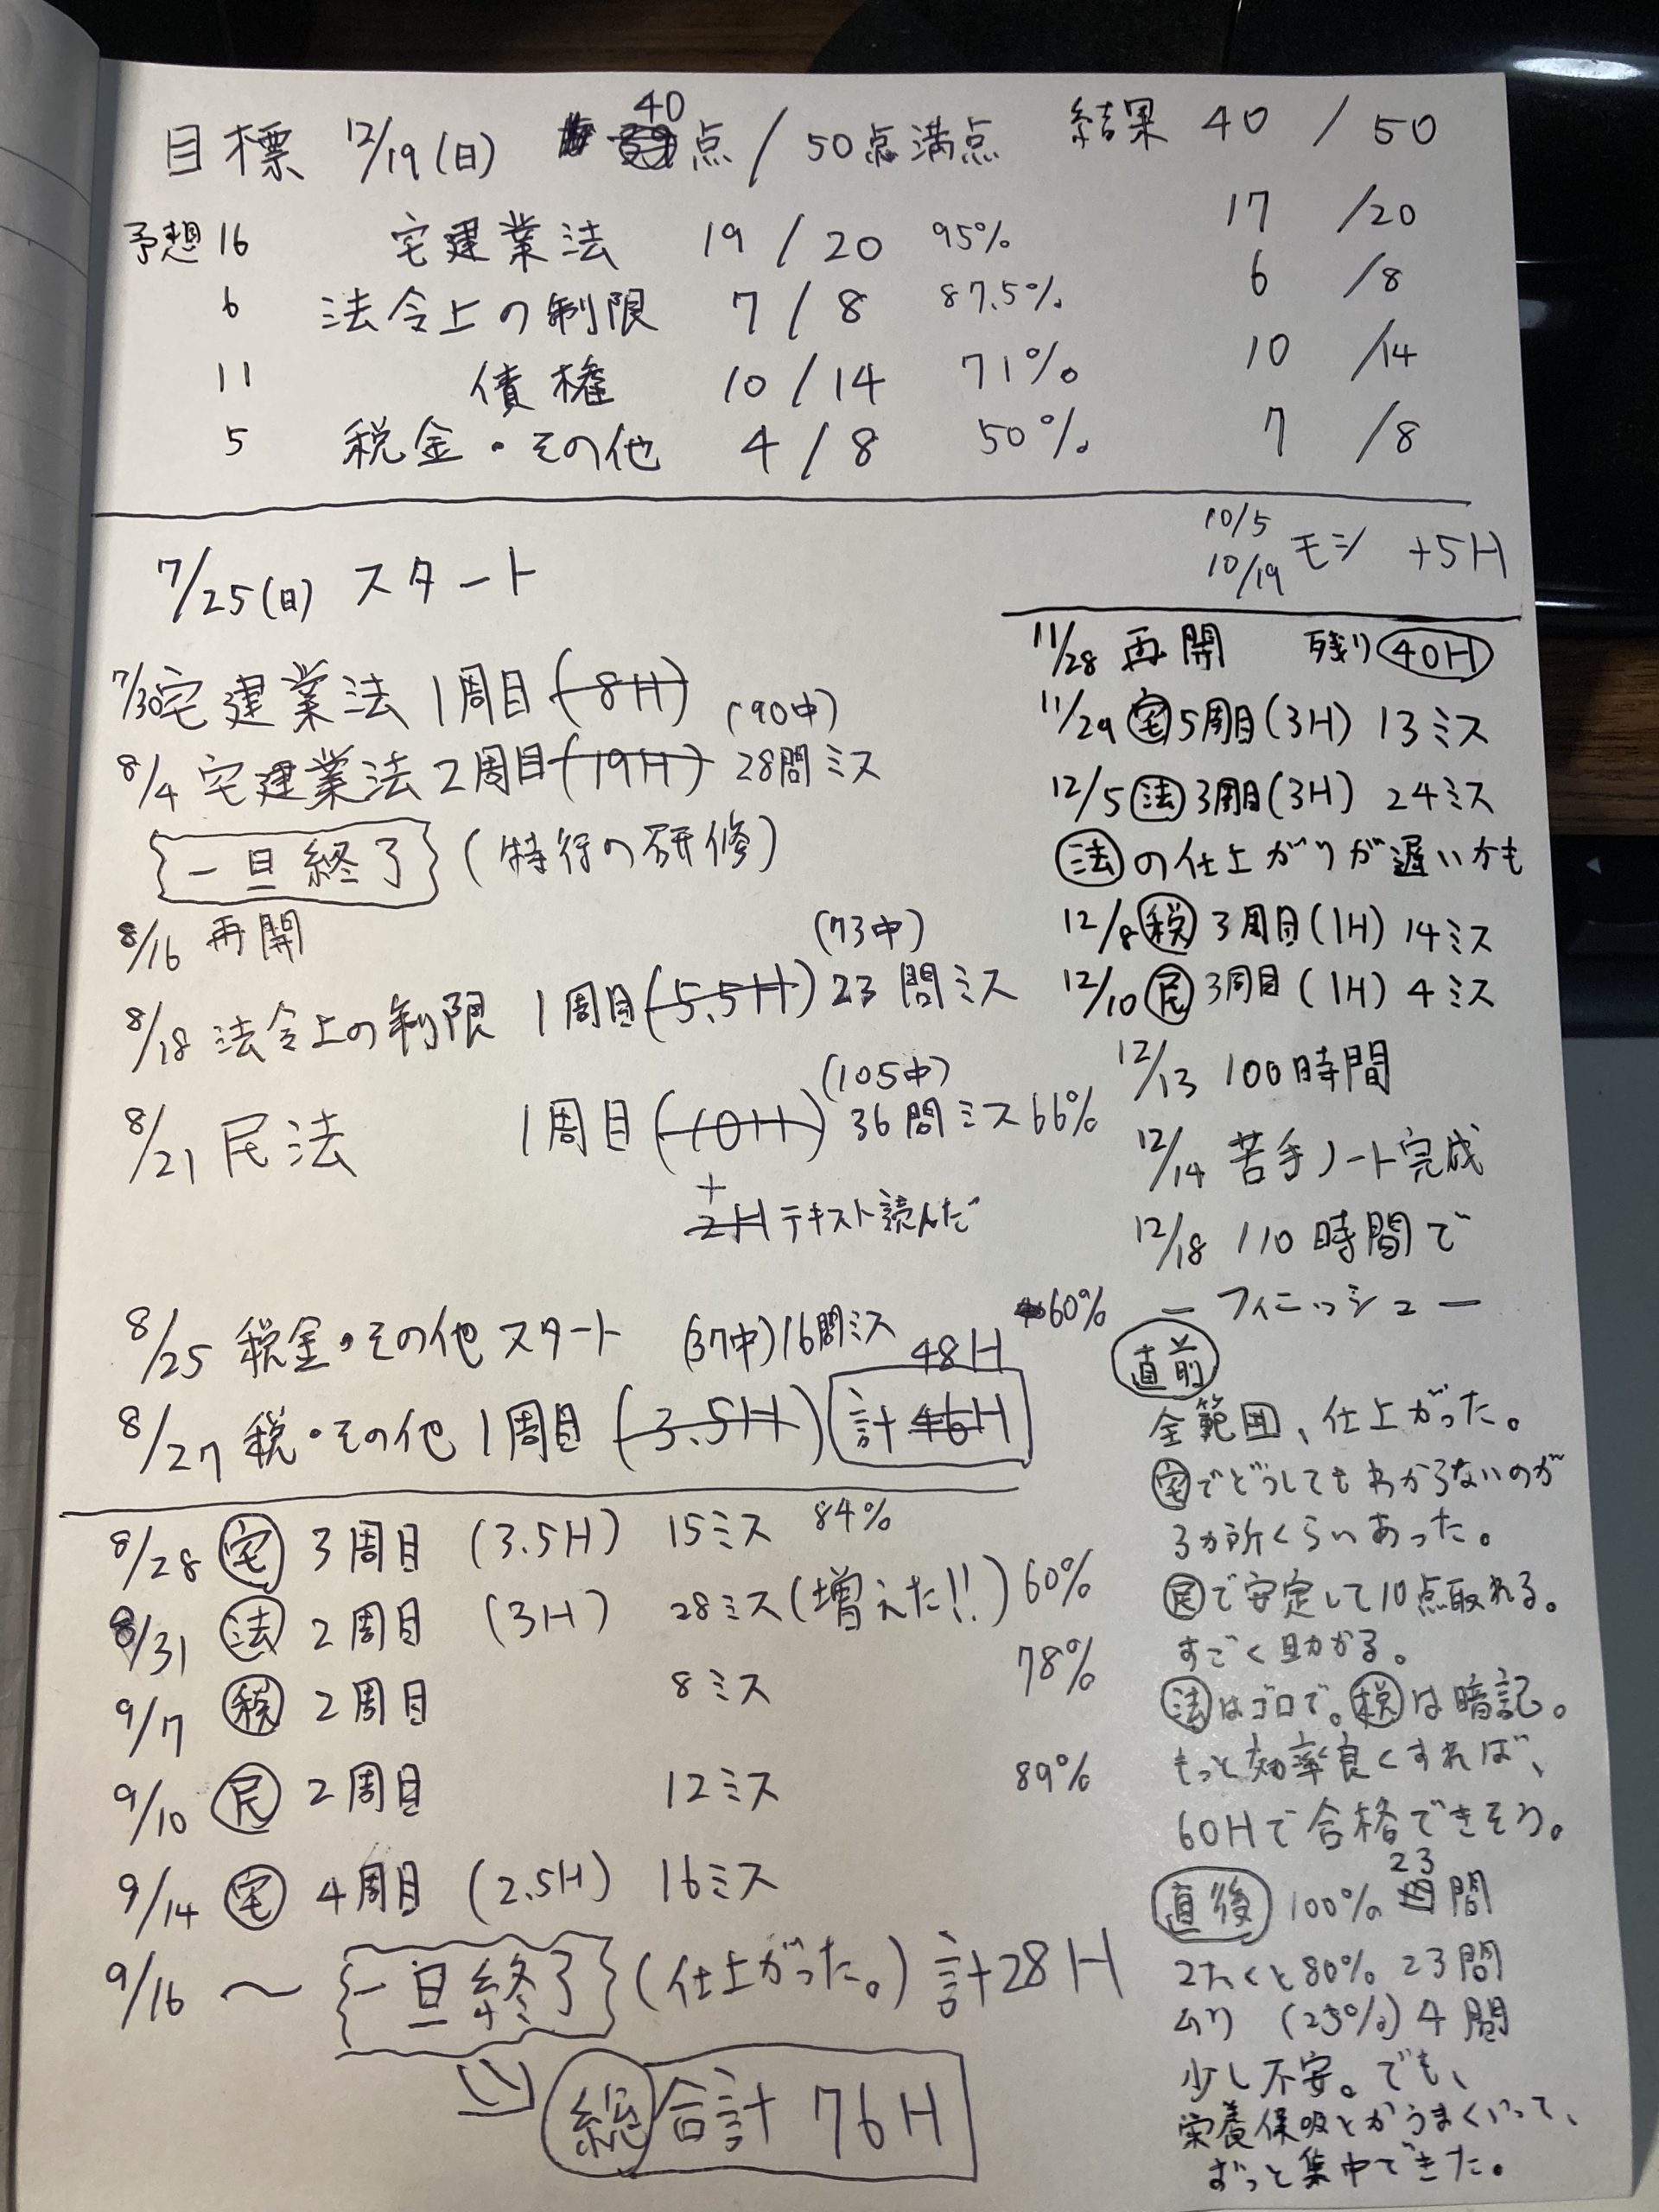 目標 12/19(日) 40点/50点満点 結果 40/50
予想16 宅建業法 19/20 95% 17/20
6 法令上の制限 7/8 87.5% 6/8
11 債権 10/14 71% 10/14
5 税金・その他 4/8 50% 7/8
7/25(日) スタート
7/30 宅建業法 1周目(8H)
(90中)
8/4 宅建業法 2周目(19H) 28問ミス
一旦終了 (特行の研修)
8/16 再開
(73中)
8/18 法令上の制限 1周目(5.5H) 23問ミス
(105中)
8/21 民法 1周目(10H) 36問ミス 66%
+
2H テキスト読んだ
8/25 税金・その他スタート (37中)16問ミス 60%
48H
8/27 税・その他1周目(3.5H) 計46H
8/28 宅 3周目 (3.5H) 15ミス 84%
8/31 法 2周目 (3H) 28ミス(増えた!!) 60%
9/7 税 2周目 8ミス 78%
9/10 民 2周目 12ミス 89%
9/14 宅 4周目 (2.5H) 16ミス
9/16 〜 一旦終了 (仕上がった。) 計28H
総合計 76H
10/5
10/19 モシ +5H
11/28 再開 残り 40H
11/29 宅 5周目(3H) 13ミス
12/5 法 3周目(3H) 24ミス
法の仕上がりが遅いかも
12/8 税 3周目(1H) 14ミス
12/10 民 3周目(1H) 4ミス
12/13 100時間
12/14 苦手ノート完成
12/18 110時間で
ー フィニッシュ ー
直前
全範囲、仕上がった。
宅でどうしてもわからないのが
3カ所くらいあった。
民で安定して10点取れる。
すごく助かる。
法はゴロで。税は暗記。
もっと効率良くすれば、
60Hで合格できそう。
直後 100% 23問
2たくと80% 23問
ムリ (25%) 4問
少し不安。でも、
栄養保吸とかうまくいって、
ずっと集中できた。